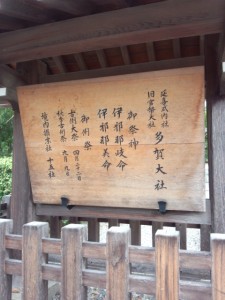 延喜式内社
旧官幣大社
多賀大社
御祭神
伊邪那岐命
伊邪那美命
御例祭
古例大祭 四月二十二日
秋季古例祭 九月九日
境内摂末社 十五社